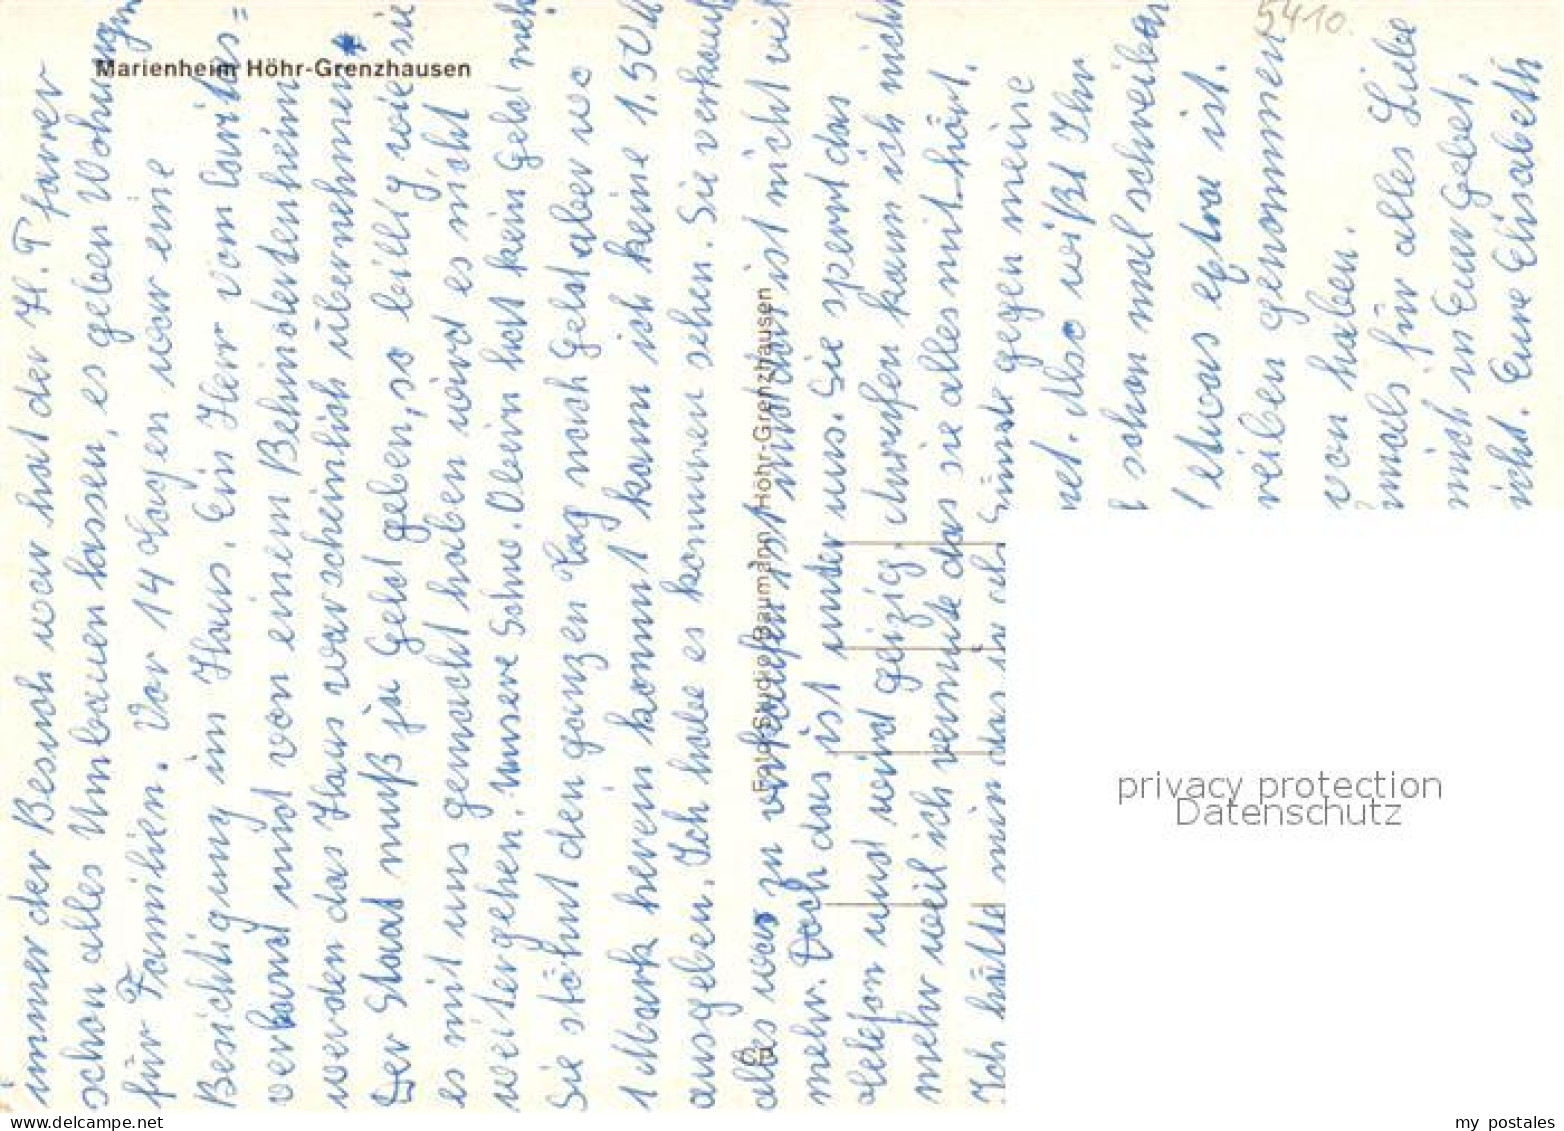 5410.
Marienheim Höhr-Grenzhausen
immer der Besuch war hat der H. Pfarrer
schon alles Umbauen lassen, es geben Wohnungen
für Familien. Vor 14 Tagen war eine
Besichtigung im Haus. Ein Herr vom Caritas=
verband und von einem Behindertenheim
werden das Haus warscheinlich übernehmen
Der Staat muß ja Geld geben, so billig wie sie
es mit uns gemacht haben wird es nicht
weitergehen. Unsere Schw. Obein hat kein Geld meh
Sie stöhnt den ganzen Tag nach Geld aber wo
1 Mark herein kommt kann ich keine 1,50 M
ausgeben. Ich habe es kommen sehen. Sie verkauf
alles was zu verkaufen ist und das ist nicht viel
mehr. Doch das ist unter uns. Sie sperrt das
Telefon und wird geizig. Anrufen kann ich nich
mehr weil ich vermute das sie alles mit-hört.
Ich hätte mir das in der Sünde gegen meine
net. Also wißt Ihr
schon mal schreiben
etwas extra ist.
reiben genommen
von haben.
mals für alles Liebe
mich in Eur Gebet,
icht. Eure Elisabeth
Foto-Studio Baumann Höhr-Grenzhausen
Cp
privacy protection
Datenschutz
www.delcampe.net
my_postales